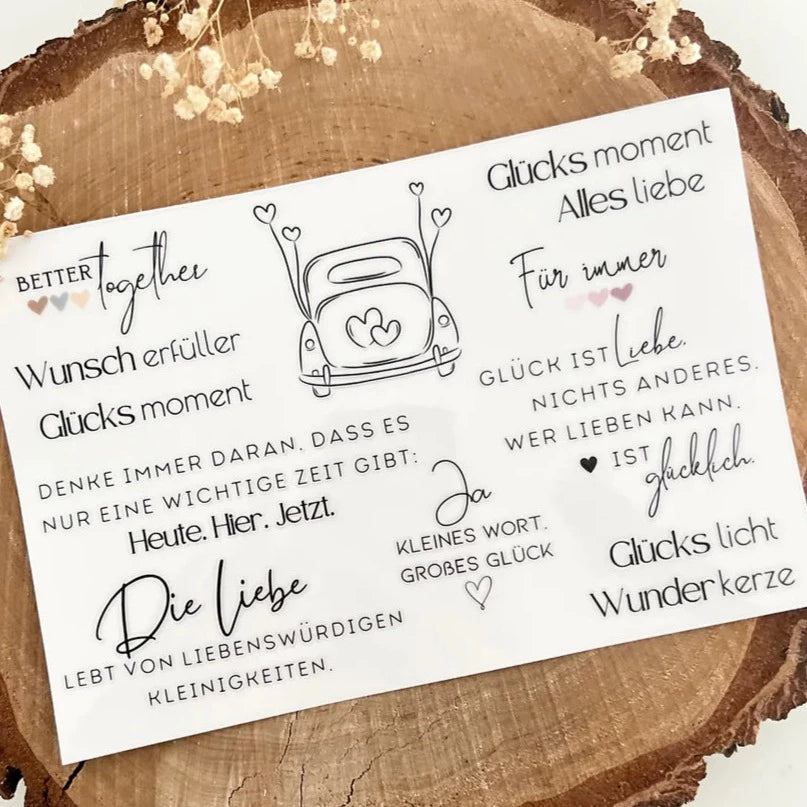 BETTER together
Wunsch erfüller
Glücks moment
DENKE IMMER DARAN, DASS ES
NUR EINE WICHTIGE ZEIT GIBT:
Heute. Hier. Jetzt.
Die Liebe
LEBT VON LIEBENSWÜRDIGEN
KLEINIGKEITEN.
Ja
KLEINES WORT.
GROßES GLÜCK
Glücks moment
Alles liebe
Für immer
GLÜCK IST Liebe.
NICHTS ANDERES.
WER LIEBEN KANN.
IST glücklich.
Glücks licht
Wunder kerze